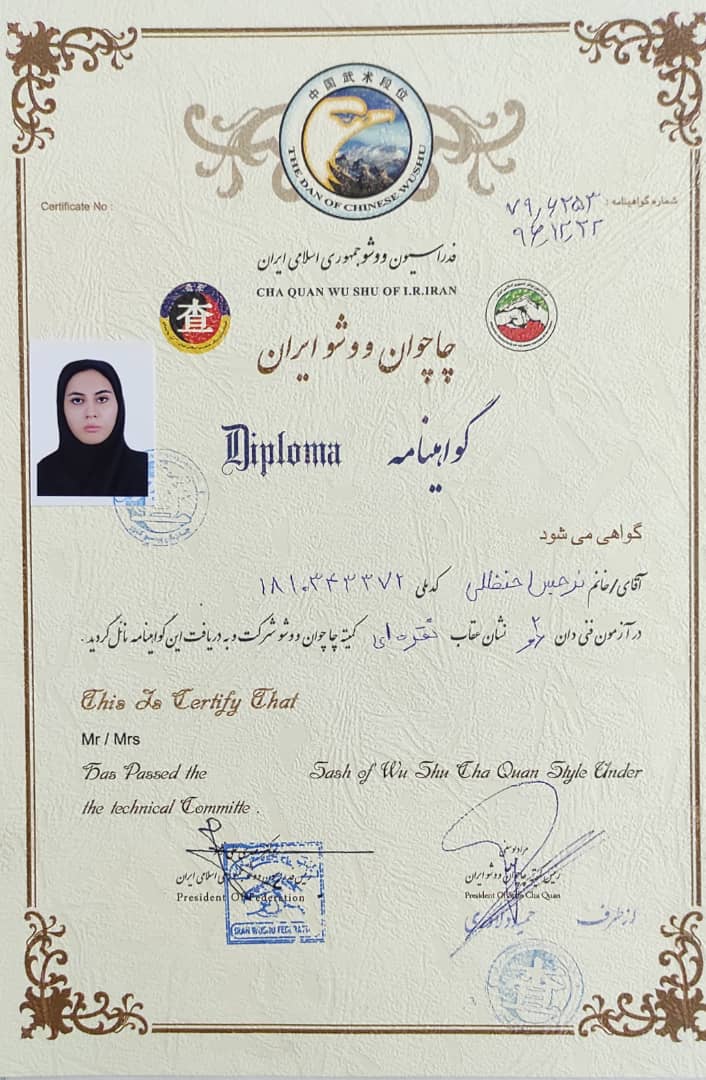 中国武术段位
THE DAN OF CHINESE WUSHU
Certificate No :
شماره گواهینامه : ۷۹،۶۲۵۳
۹۶،۱۲،۲۲
فدراسیون ووشو جمهوری اسلامی ایران
CHA QUAN WU SHU OF I.R.IRAN
查
چاچوان ووشو ایران
Diploma گواهینامه
گواهی می شود
آقای/خانم نرجس احنظلی کدملی ۱۸۱۰۳۴۳۳۷۲
در آزمون فنی دان ۲ نشان عقاب نقره‌ای کمیته چاچوان ووشو شرکت و به دریافت این گواهینامه نائل گردید .
This Is Certify That
Mr / Mrs
Has Passed the Sash of Wu Shu Cha Quan Style Under
the technical Committe .
رئیس فدراسیون ووشو جمهوری اسلامی ایران
President Of Federation
IRAN WUSHU FEDERATION
رئیس کمیته چاچوان ووشو ایران
President Of Cha Quan
از طرف